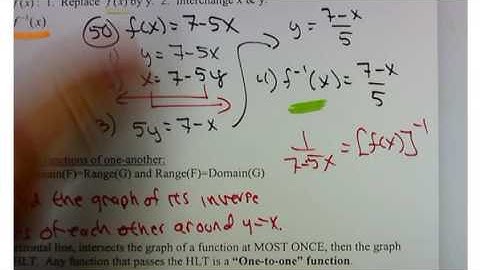 f(x): 1. Replace f(x) by y. 2. Interchange x & y.
f⁻¹(x)
50) f(x) = 7-5x
y = 7-5x
x = 7-5y
3) 5y = 7-x
y = 7-x/5
4) f⁻¹(x) = 7-x/5
1/7-5x = [f(x)]⁻¹
functions of one-another:
Domain(F)=Range(G) and Range(F)=Domain(G)
the graph of its inverse
of each other around y=x.
horizontal line, intersects the graph of a function at MOST ONCE, then the graph
HLT. Any function that passes the HLT is a "One-to-one" function.